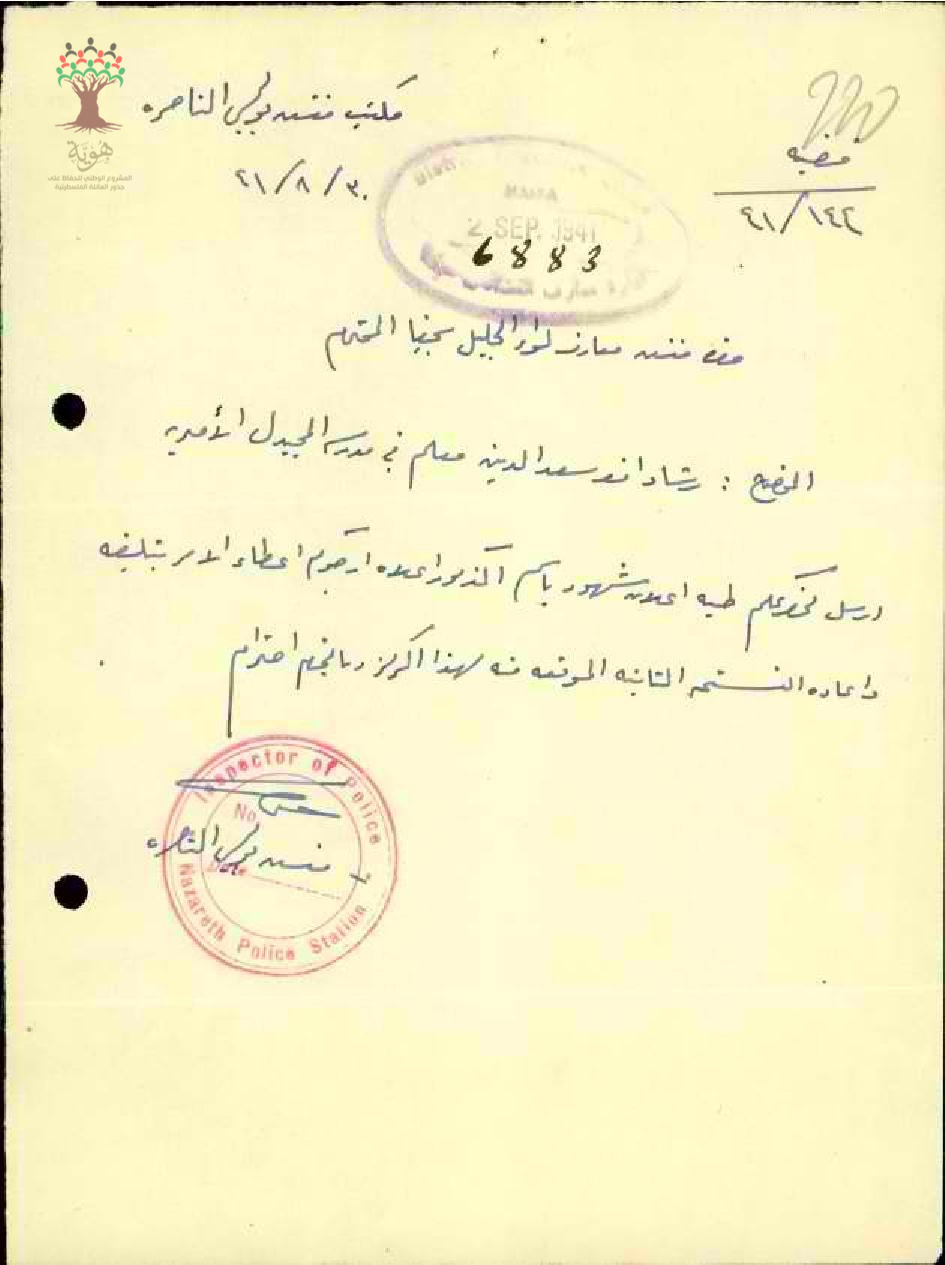 هوية
المشروع الوطني للحفاظ على
جذور العائلة الفلسطينية
مكتب مفتش بوليس الناصره
٤١/٨/٣٠
قضيه
٤١/١٤٢
HAIFA
2 SEP. 1941
6883
حضرة مفتش معارف لواء الجليل بحيفا المحترم
الموضوع : رشاد افندي سعد الدين معلم في مدرسة المجيدل الأميريه
ارسل لحضرتكم طيه اعلان شهود باسم المذكور اعلاه ارجوكم اعطاء الامر بتبليغه
واعاده النسخه الثانيه الموقعه منه لهذا المركز احترام
Inspector of Police
No.
Date
مفتش بوليس الناصره
Nazareth Police Station